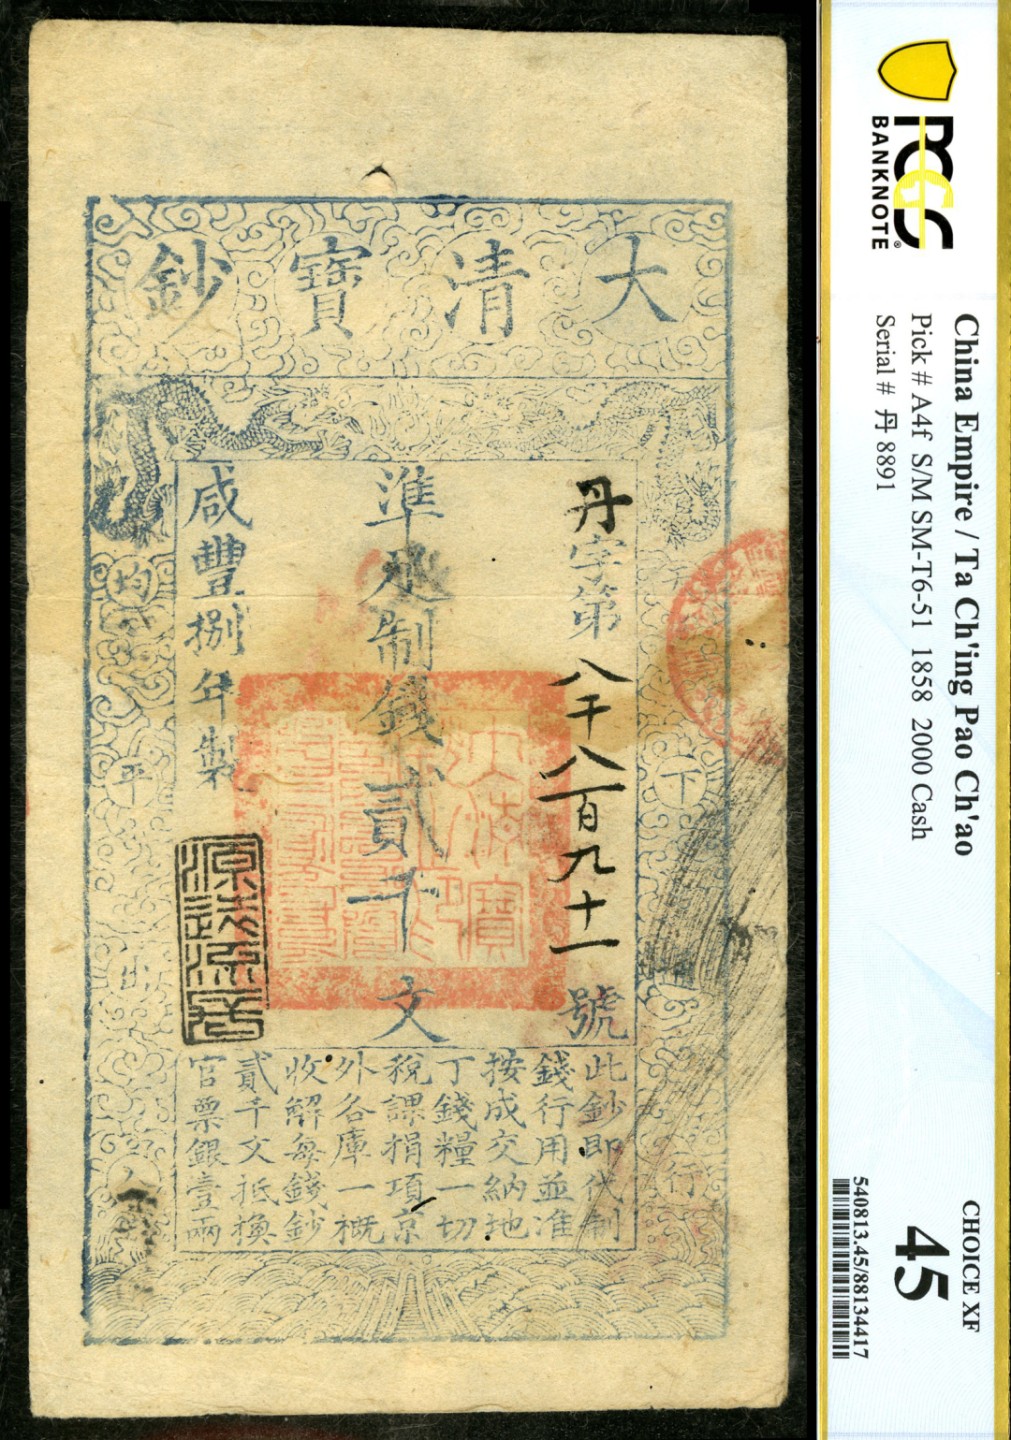 大清寶鈔
丹字第八千八百九十一號
準足制錢貳千文
咸豐捌年製
此鈔即代制
錢行用並准
按成交納地
丁錢糧一切
稅課捐項京
外各庫一概
收解每錢鈔
貳千文抵換
官票銀壹兩
天下
行
均平出
源遠流長
PCGS
BANKNOTE
China Empire / Ta Ch'ing Pao Ch'ao
Pick # A4f S/M SM-T6-51 1858 2000 Cash
Serial # 丹 8891
CHOICE XF
45
540813.45/88134417